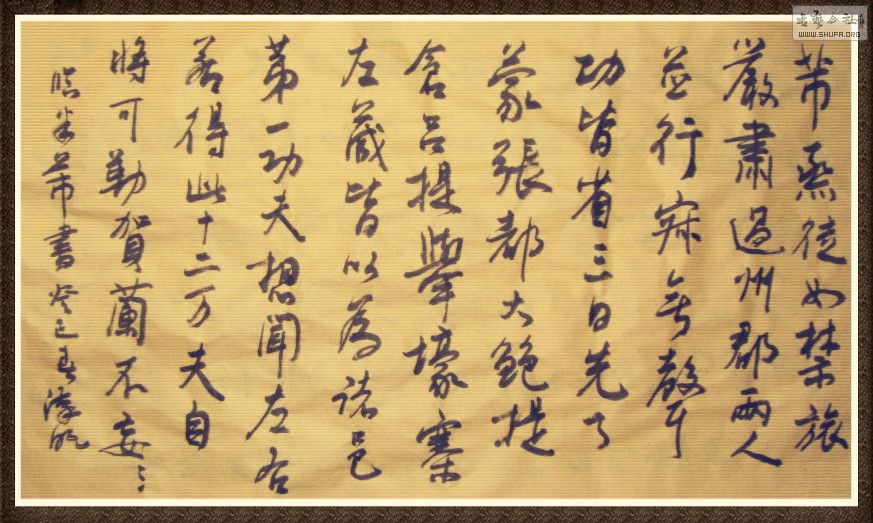 書藝公社
WWW.SHUFA.ORG
芾烝徒如禁旅
嚴肅過州郡兩人
並行寂無聲
功皆省三日先了
蒙張都大鮑提
倉呂提舉壕寨
左藏皆以為諸邑
第一功夫想聞左右
若得此十二万夫自
將可勒賀蘭不妄〻
臨米芾書癸巳春